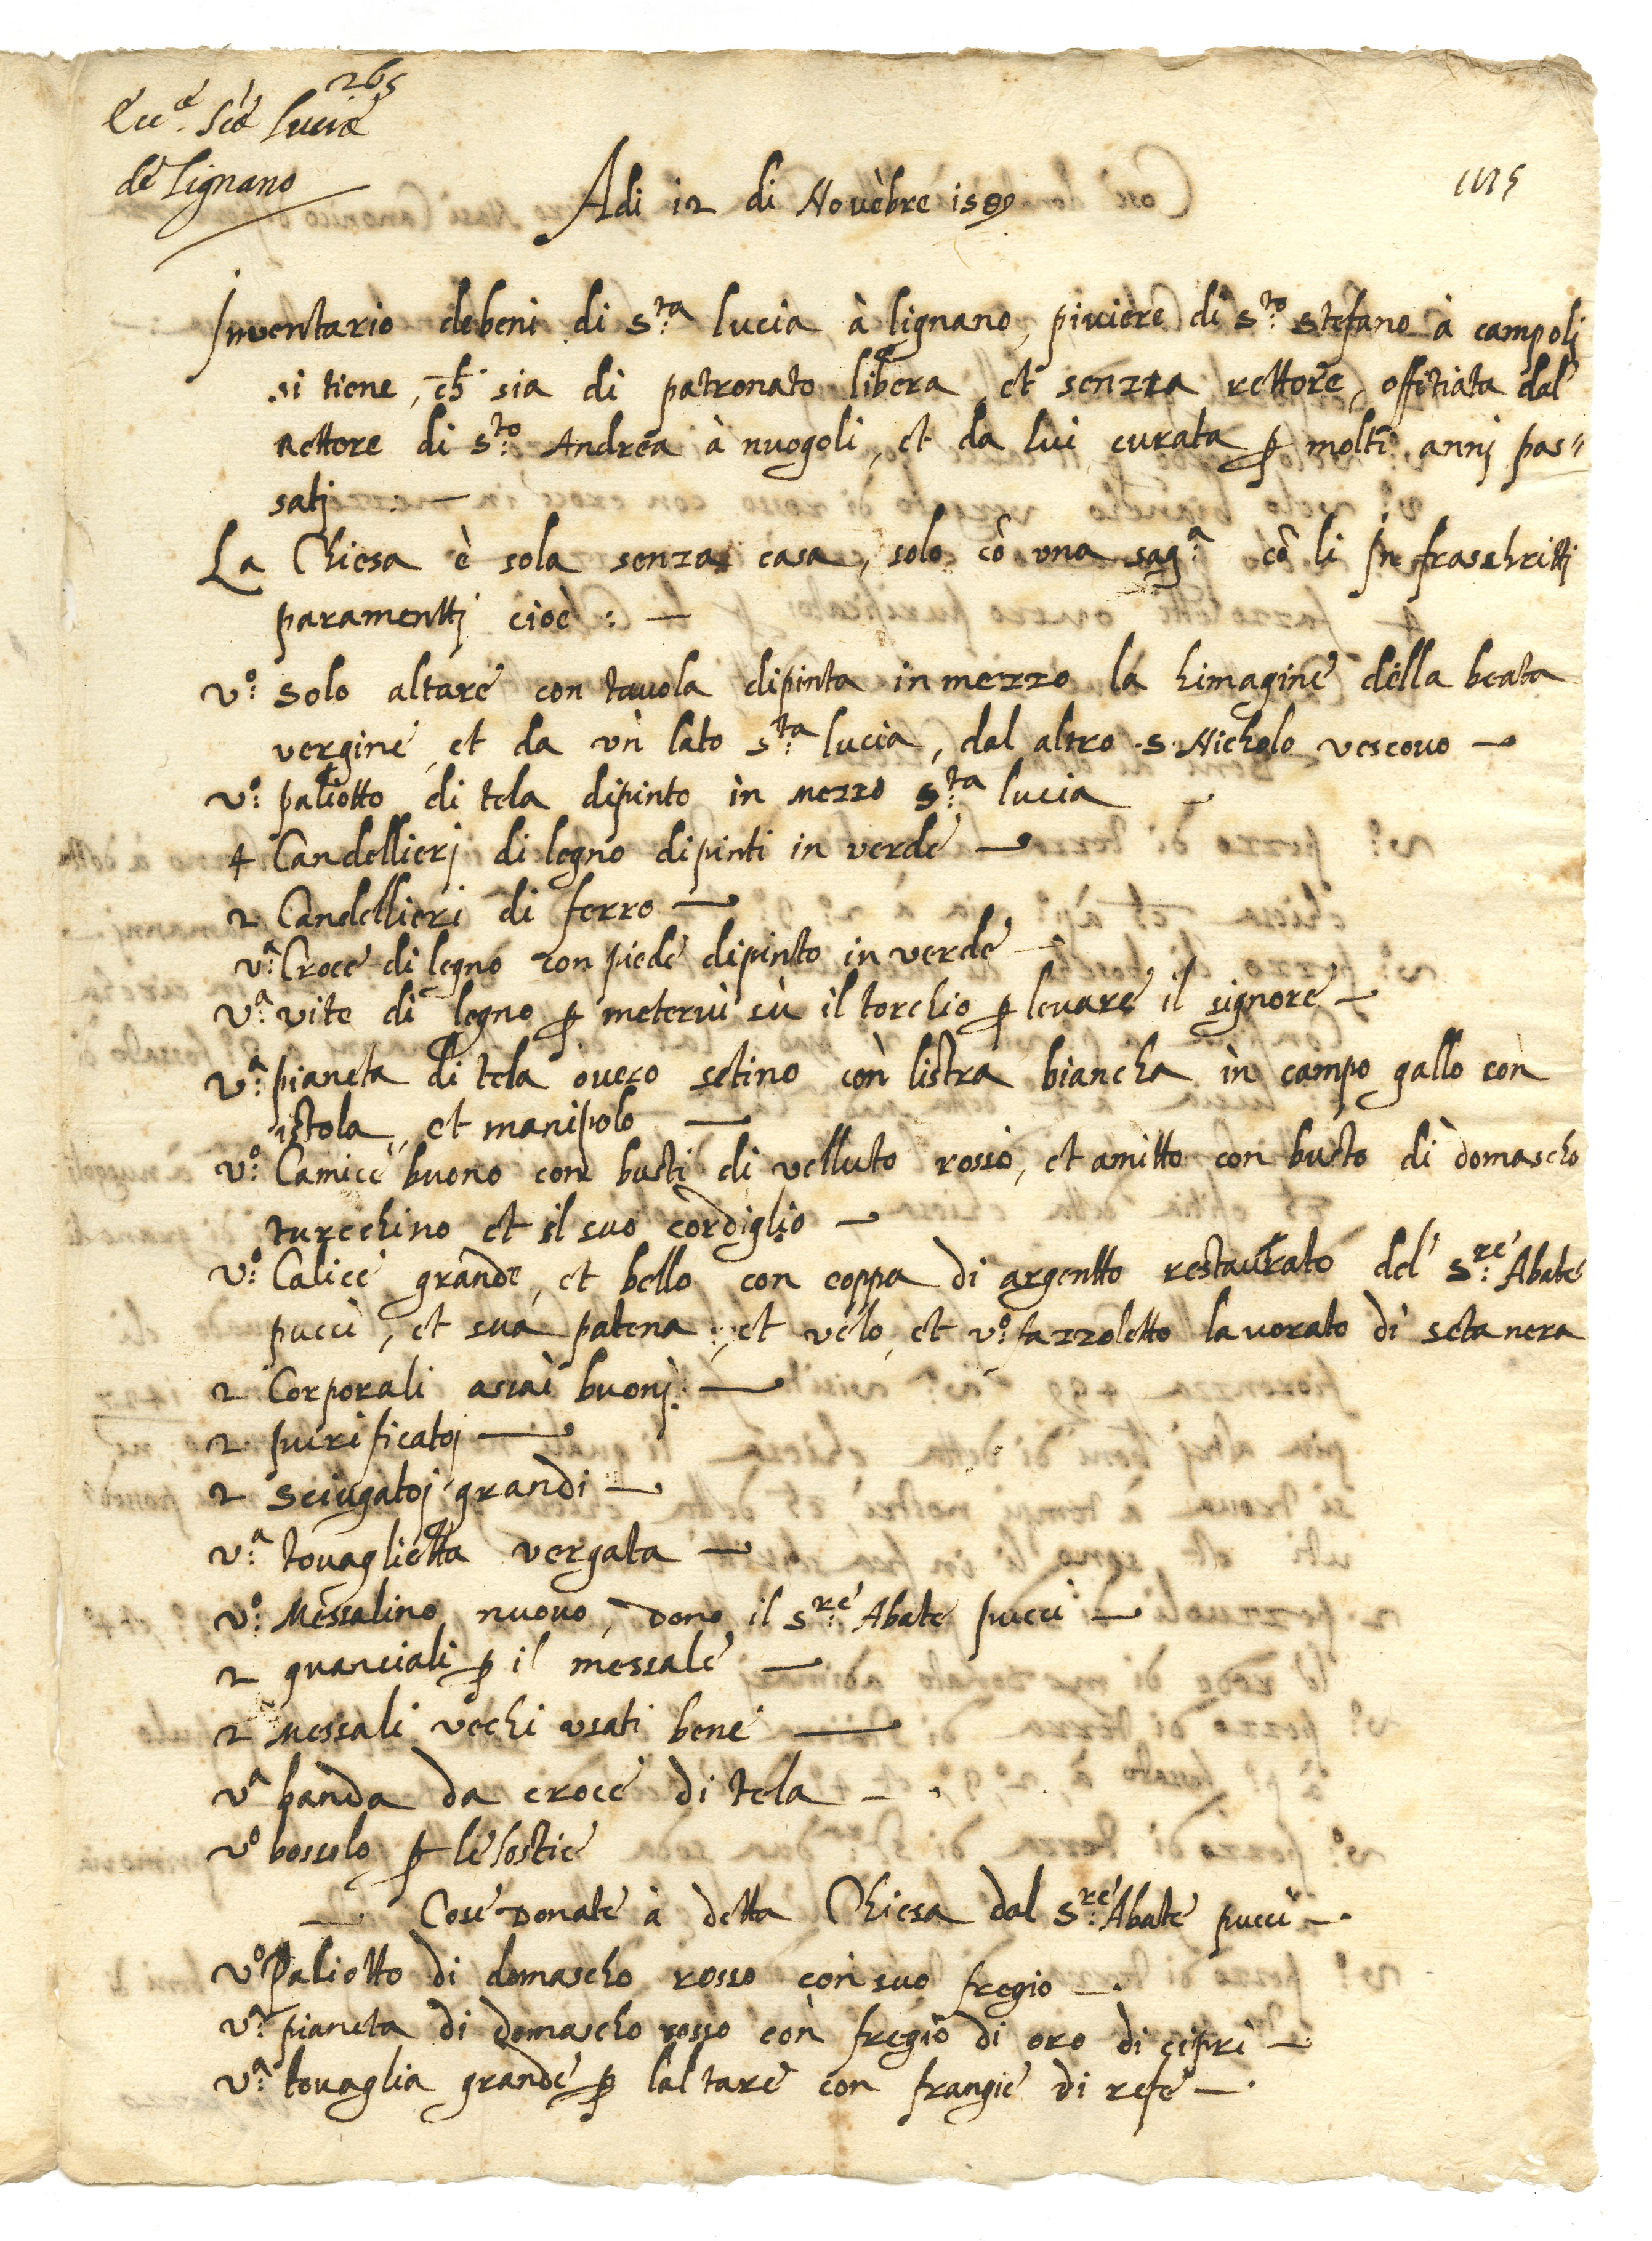 265
Ecc.ᵃ Scæ Luciæ
de Lignano
1115
Adi 12 di Novèbre 1589
Inventario debeni di S.ta lucia à lignano, piviere di S.to Stefano à campolj
si tiene, ch̄ sia di patronato libera et senzza rettore, offitiata dal
Rettore di S.to Andrea à nuogoli, et da lui curata p molti annj pas=
satj —
La Chiesa è sola senza casa, solo cō una sag.a cō li Infraschrittj
paramenttj cioè : —
v.o solo altare con tauola dipinta in mezzo la himagine della beata
vergine, et da vn lato S.ta lucia, dal altro .S. Nicholo vescouo —
v.o paliotto di tela dipinto in mezzo S.ta lucia —
4 Candellierj di legno dipinti in verde —
2 Candellieri di ferro —
v.a Croce di legno con piede dipinto in verde —
v.a vite di legno p metervi sù il torchio p leuare il signore —
v.a pianeta di tela ouero setino còn listra biancha in campo gallo con
istola, et manipolo —
v.o Camice buono con busti di velluto rosso, et amitto con busto di domascho
turcchino et il suo cordiglio —
v.o Calice grande, et bello con coppa di argentto restaurato del S.re Abate
pucci, et sua patena, et velo, et v.o fazzoletto lavorato di seta nera
2 Corporali assai buonj. —
2 purificatoj —
2 sciugatoj grandi —
v.a touaglietta vergata —
v.o Messalino nuouo, dono il S.re Abate pucci —
2 guanciali p il messale —
2 Messali vechi vsati bene —
v.a banda da croce di tela —
v.o bossolo p le hostie
— Cose Donate à detta Chiesa dal S.re Abate pucci —.
v.o Paliotto di domascho rosso còn suo fregio —.
v.a pianeta di domascho rosso còn fregio di oro di cipri —
v.a touaglia grande p laltare con frangie di refe —.